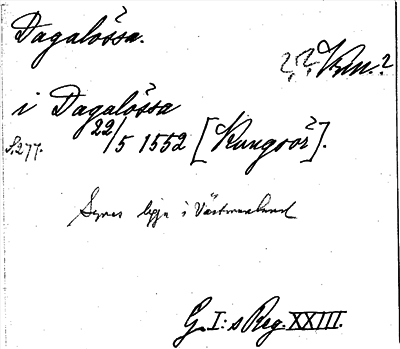 Dagalössa.
? ? Vsm.?
i Dagalössa
22/5 1552 [Kungsör?].
S. 277.
Synes ligga i Västmanland
G. I:s Reg. XXIII.